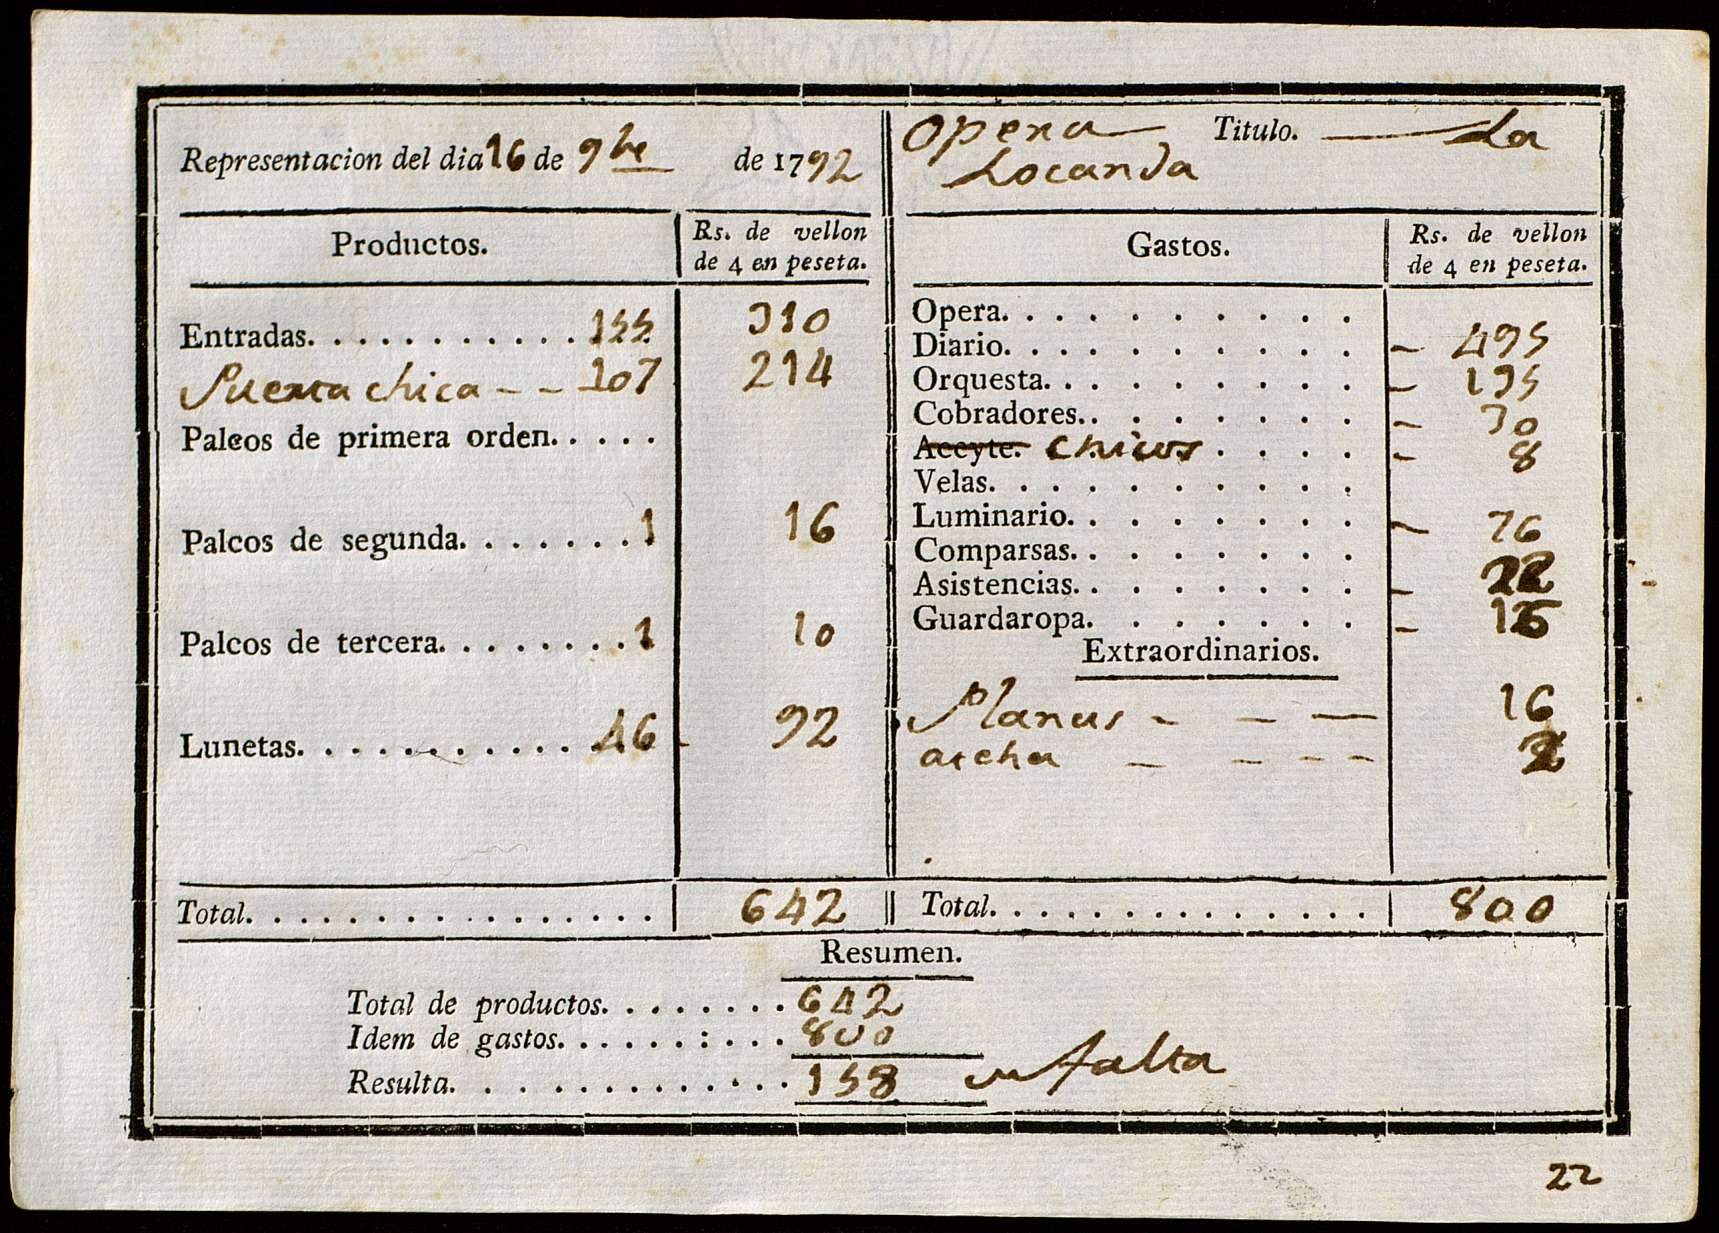 Representacion del dia 16 de 9bre de 1792
Opera Titulo. La
Locanda
Productos. Rs. de vellon
de 4 en peseta.
Entradas. 155 310
Puerta chica 107 214
Palcos de primera orden.
Palcos de segunda. 1 16
Palcos de tercera. 1 10
Lunetas. 46 92
Total. 642
Gastos. Rs. de vellon
de 4 en peseta.
Opera.
Diario. 495
Orquesta. 135
Cobradores. 30
Aceyte. chicos 8
Velas.
Luminario. 76
Comparsas.
Asistencias. 22
Guardaropa. 16
Extraordinarios.
16
2
Total. 800
Resumen.
Total de productos. 642
Idem de gastos. 800
Resulta. 158 en falta
22